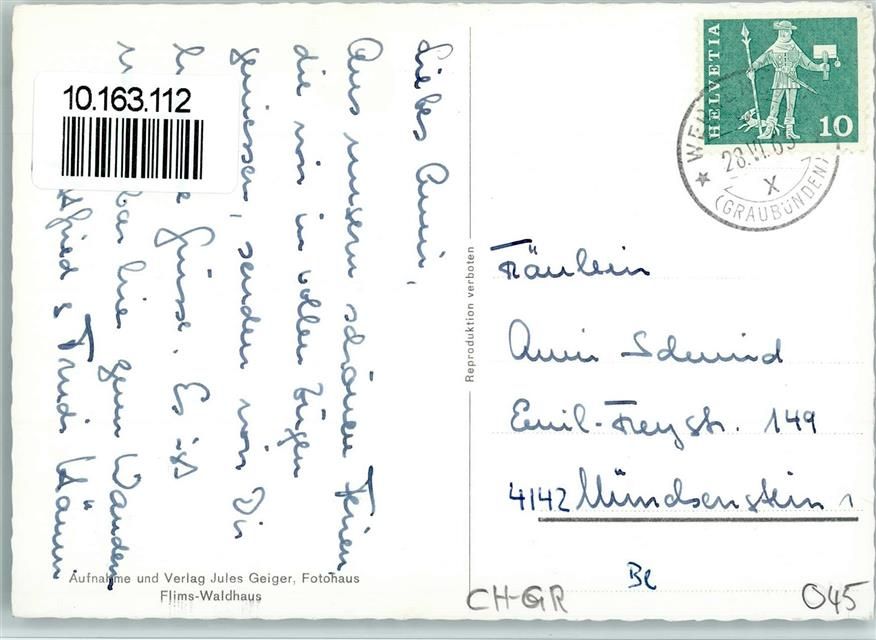 Liebes Anni,
Aus unsern schönen Ferien,
die wir in vollen Zügen
geniessen, senden wir Dir
Grüsse. Es ist
hier zum Wandern
& Trudi Hänni
10.163.112
Aufnahme und Verlag Jules Geiger, Fotohaus
Flims-Waldhaus
Reproduktion verboten
HELVETIA
10
28.VI.
X
(GRAUBÜNDEN)
Fräulein
Anni Schmid
Emil-Freystr. 149
4142 Münchenstein 1
Bl
CH-GR
045